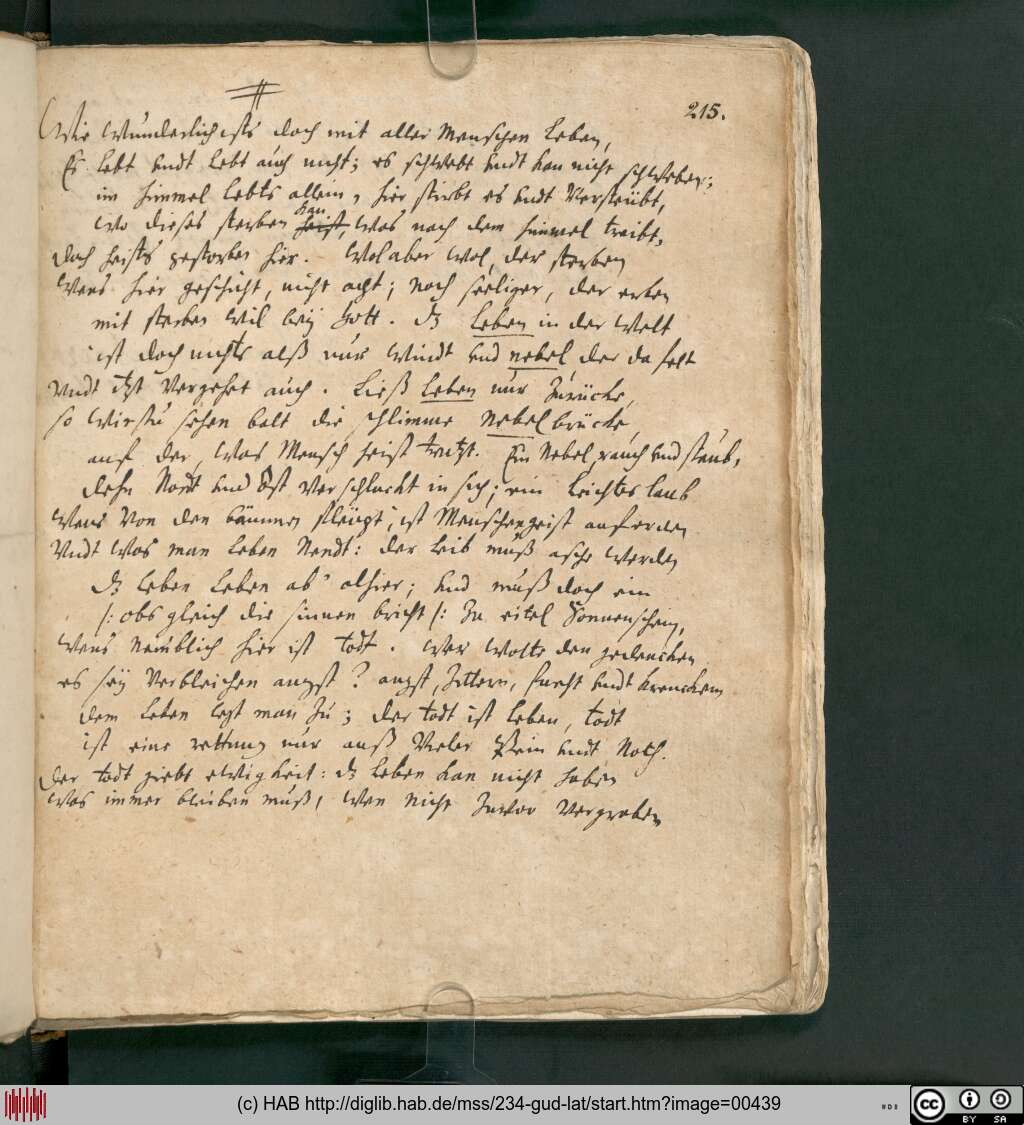 215.
Wie wunderlich ists doch mit aller Menschen Leben,
Es lebt undt lebt auch nicht; es schwebt undt kan nicht schweben;
im himmel lebts allein, hier stirbt es undt versteubt,
wo dieses sterben kan heist, was nach dem himmel treibt,
doch heists gestorben hier. Wol aber wol, der sterben
wens hier geschicht, nicht acht; noch seeliger, der erben
mit sterben wil bey Gott. dz Leben in der Welt
ist doch nichts alß nur windt und nebel, der da felt
undt itzt vergehet auch. Ließ Leben nur zurücke,
so wirstu sehen balt die schlimme Nebel brücke,
auf der, was Mensch heist trutzt. Ein Nebel, rauch und staub,
dehn Nordt und Ost verschluckt in sich; ein leichtes laub
wens von den bäumen fleügt, ist Menschengeist auf erden
Undt was man leben Nendt: der leib muß asche werden
dz leben leben ab' alhier; und muß doch ein
/: obs gleich die sinnen bricht /: Zu eitel Sonnenschein,
wens Nemblich hier ist todt. wer wolte den gedencken
es sey verbleichen angst? angst, zittern, furcht undt krencken
dem leben legt man zu; der todt ist leben, todt
ist eine rettung nur auß vieler Pein undt Noth.
der todt giebt ewigkeit: dz leben kan nicht haben
was immer bleiben muß, wen nicht zuvor vergraben
(c) HAB http://diglib.hab.de/mss/234-gud-lat/start.htm?image=00439
cc BY SA